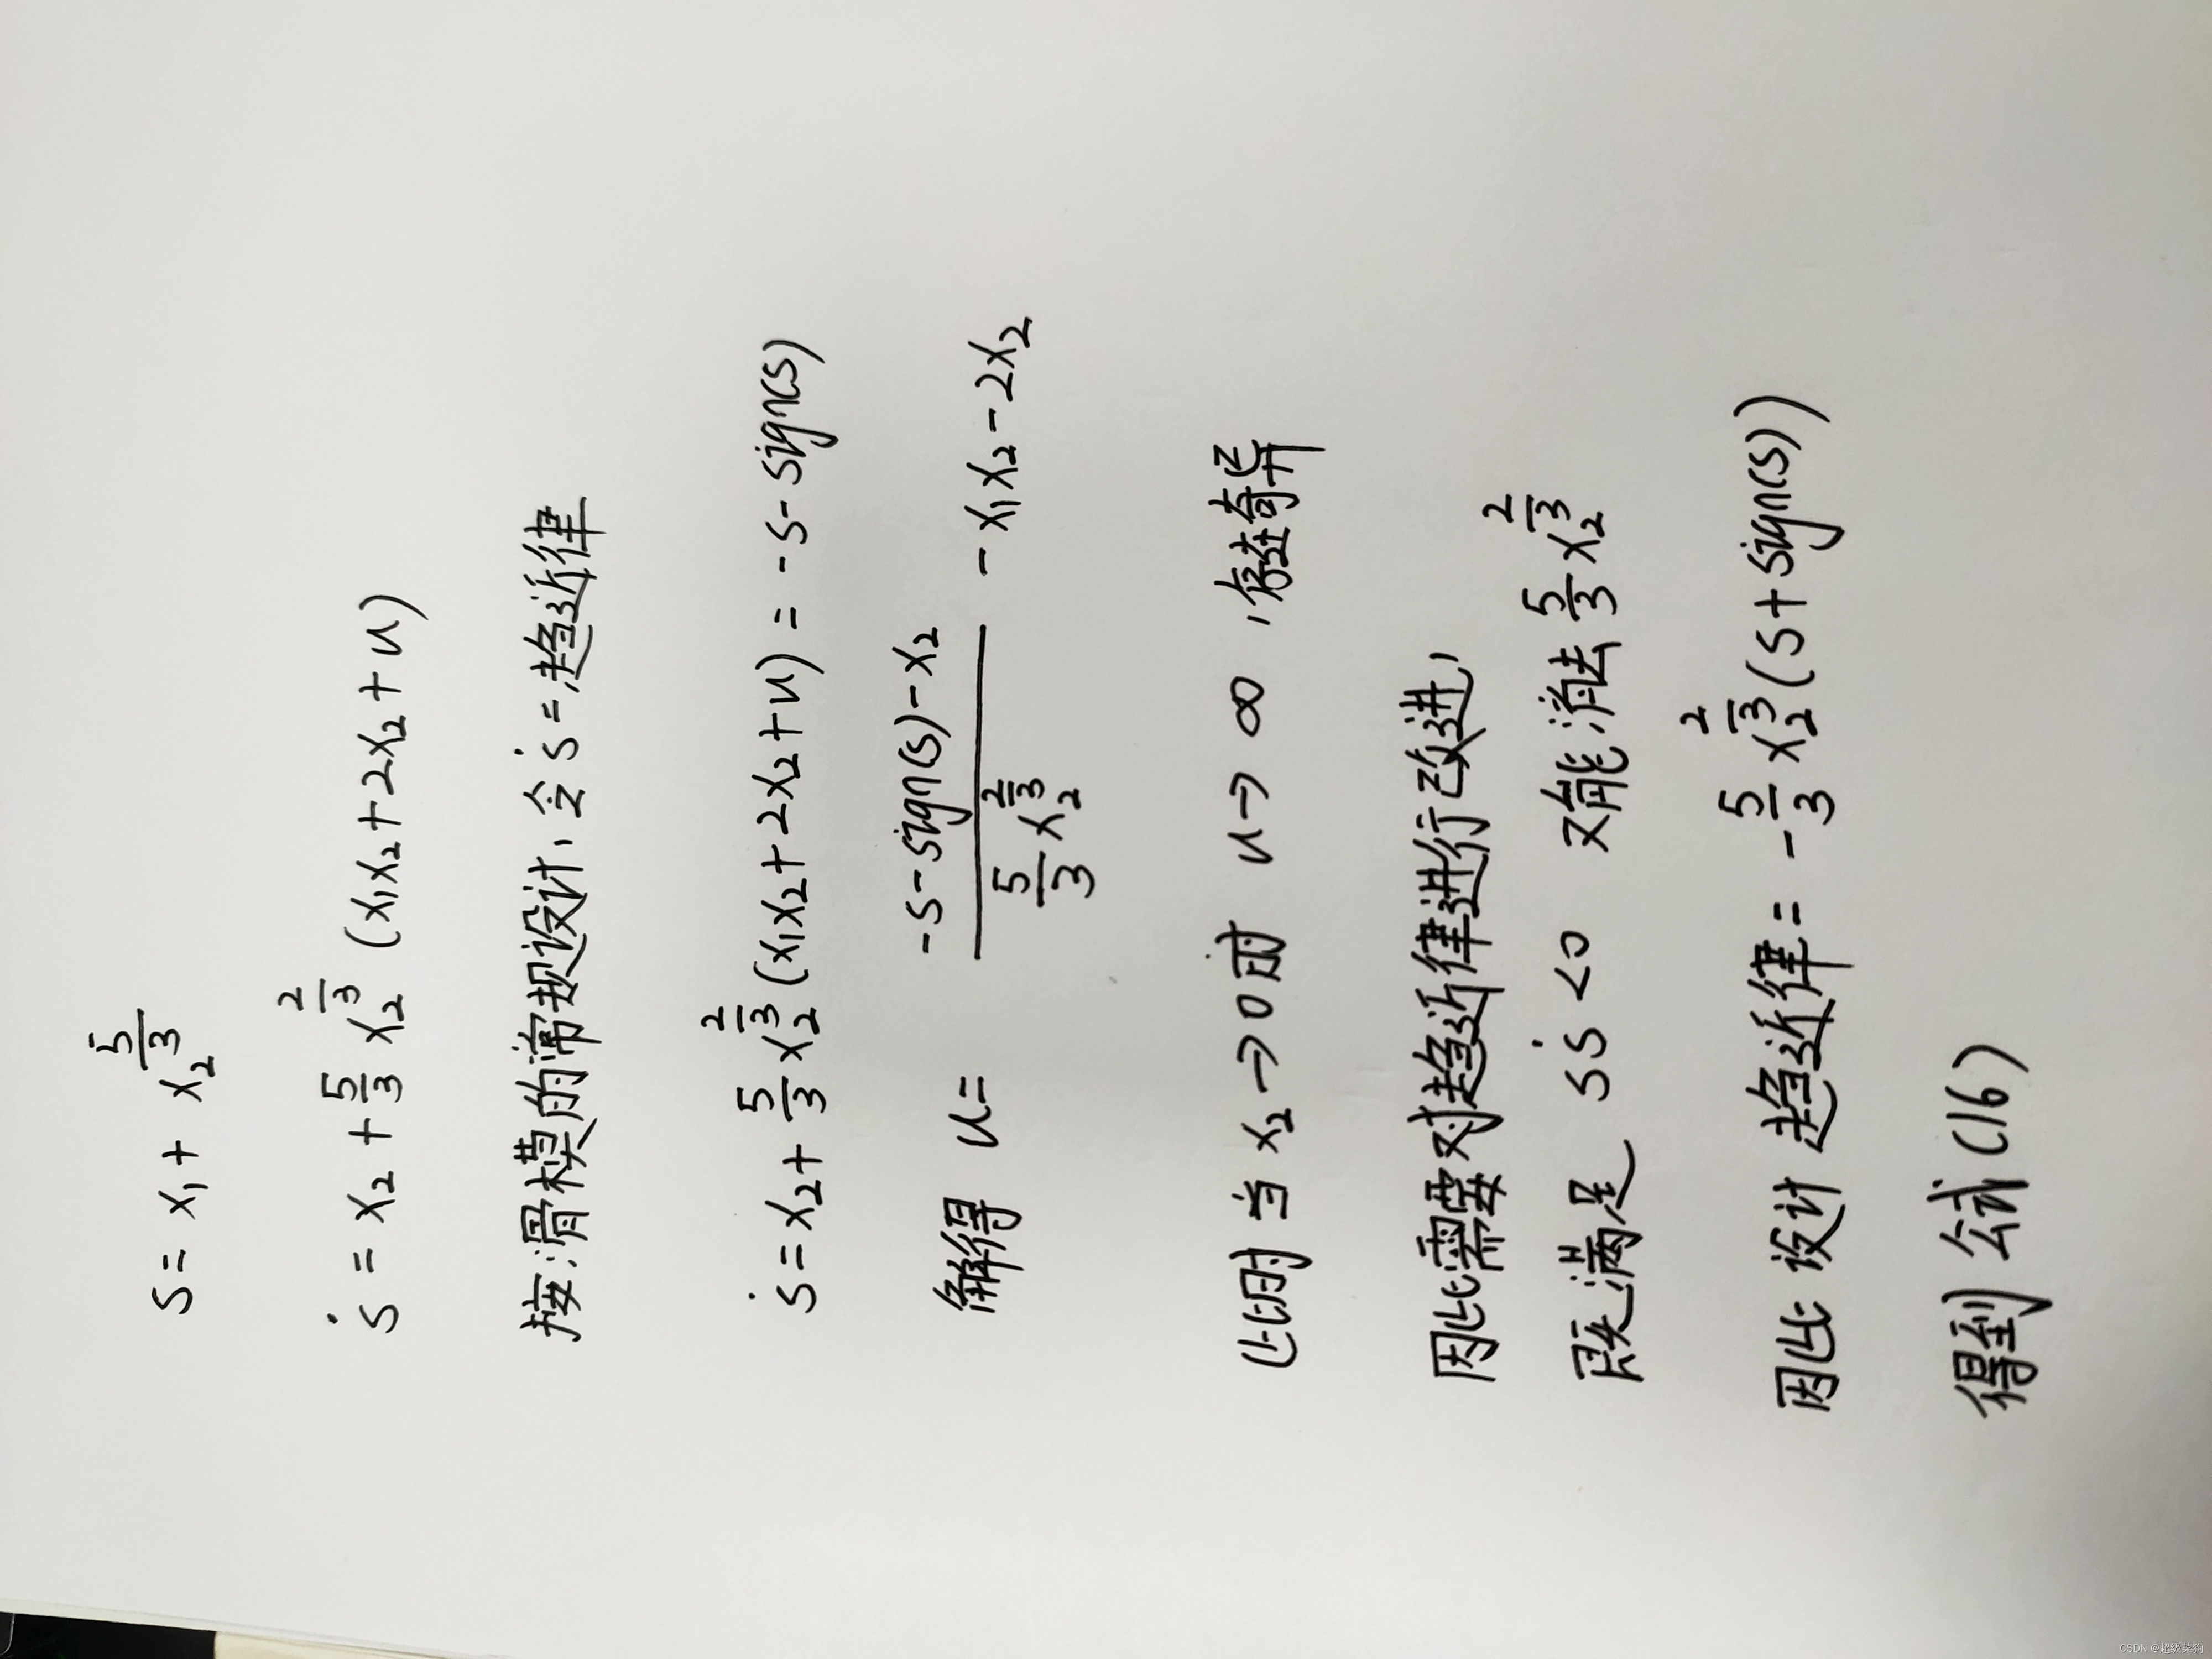 s = x₁ + x₂^(5/3)
ṡ = x₂ + 5/3 x₂^(2/3) (x₁x₂ + 2x₂ + u)
按滑模的常规设计, 令 ṡ = 趋近律
ṡ = x₂ + 5/3 x₂^(2/3) (x₁x₂ + 2x₂ + u) = -s - sign(s)
解得 u = (-s - sign(s) - x₂) / (5/3 x₂^(2/3)) - x₁x₂ - 2x₂
此时当 x₂ → 0 时 u → ∞ , 存在奇异
因此需要对趋近律进行改进,
既满足 sṡ < 0 又能消去 5/3 x₂^(2/3)
因此 设计 趋近律 = -5/3 x₂^(2/3) (s + sign(s))
得到 公式 (16)
CSDN @超级菜狗